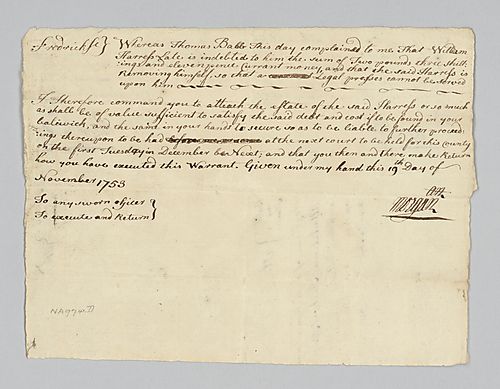 Fredricksc } Whereas Thomas Babb This day complained to me That William
Harress Late is indebted to him the sum of Two pounds three shill
ings and elevenpence Currant money, and that the said Harress is
Removing himself, so that a Legal prosses cannot be served
upon him
I Therefore command you to attach the Estate of the said Harress or so much
as shall be of value sufficient to satisfy the said debt and cost if to be found in your
baliwick, and the same in your hands to secure so as to be liable to further proceed=
ings thereupon to be had at the next court to be held for this county
on the first Tuesday in December be Next; and that you then and there make Return
how you have executed this Warrant. Given under my hand this 19th Day of
November 1753
Morgan
To any sworn officer }
To execute and Return }
NA974.D